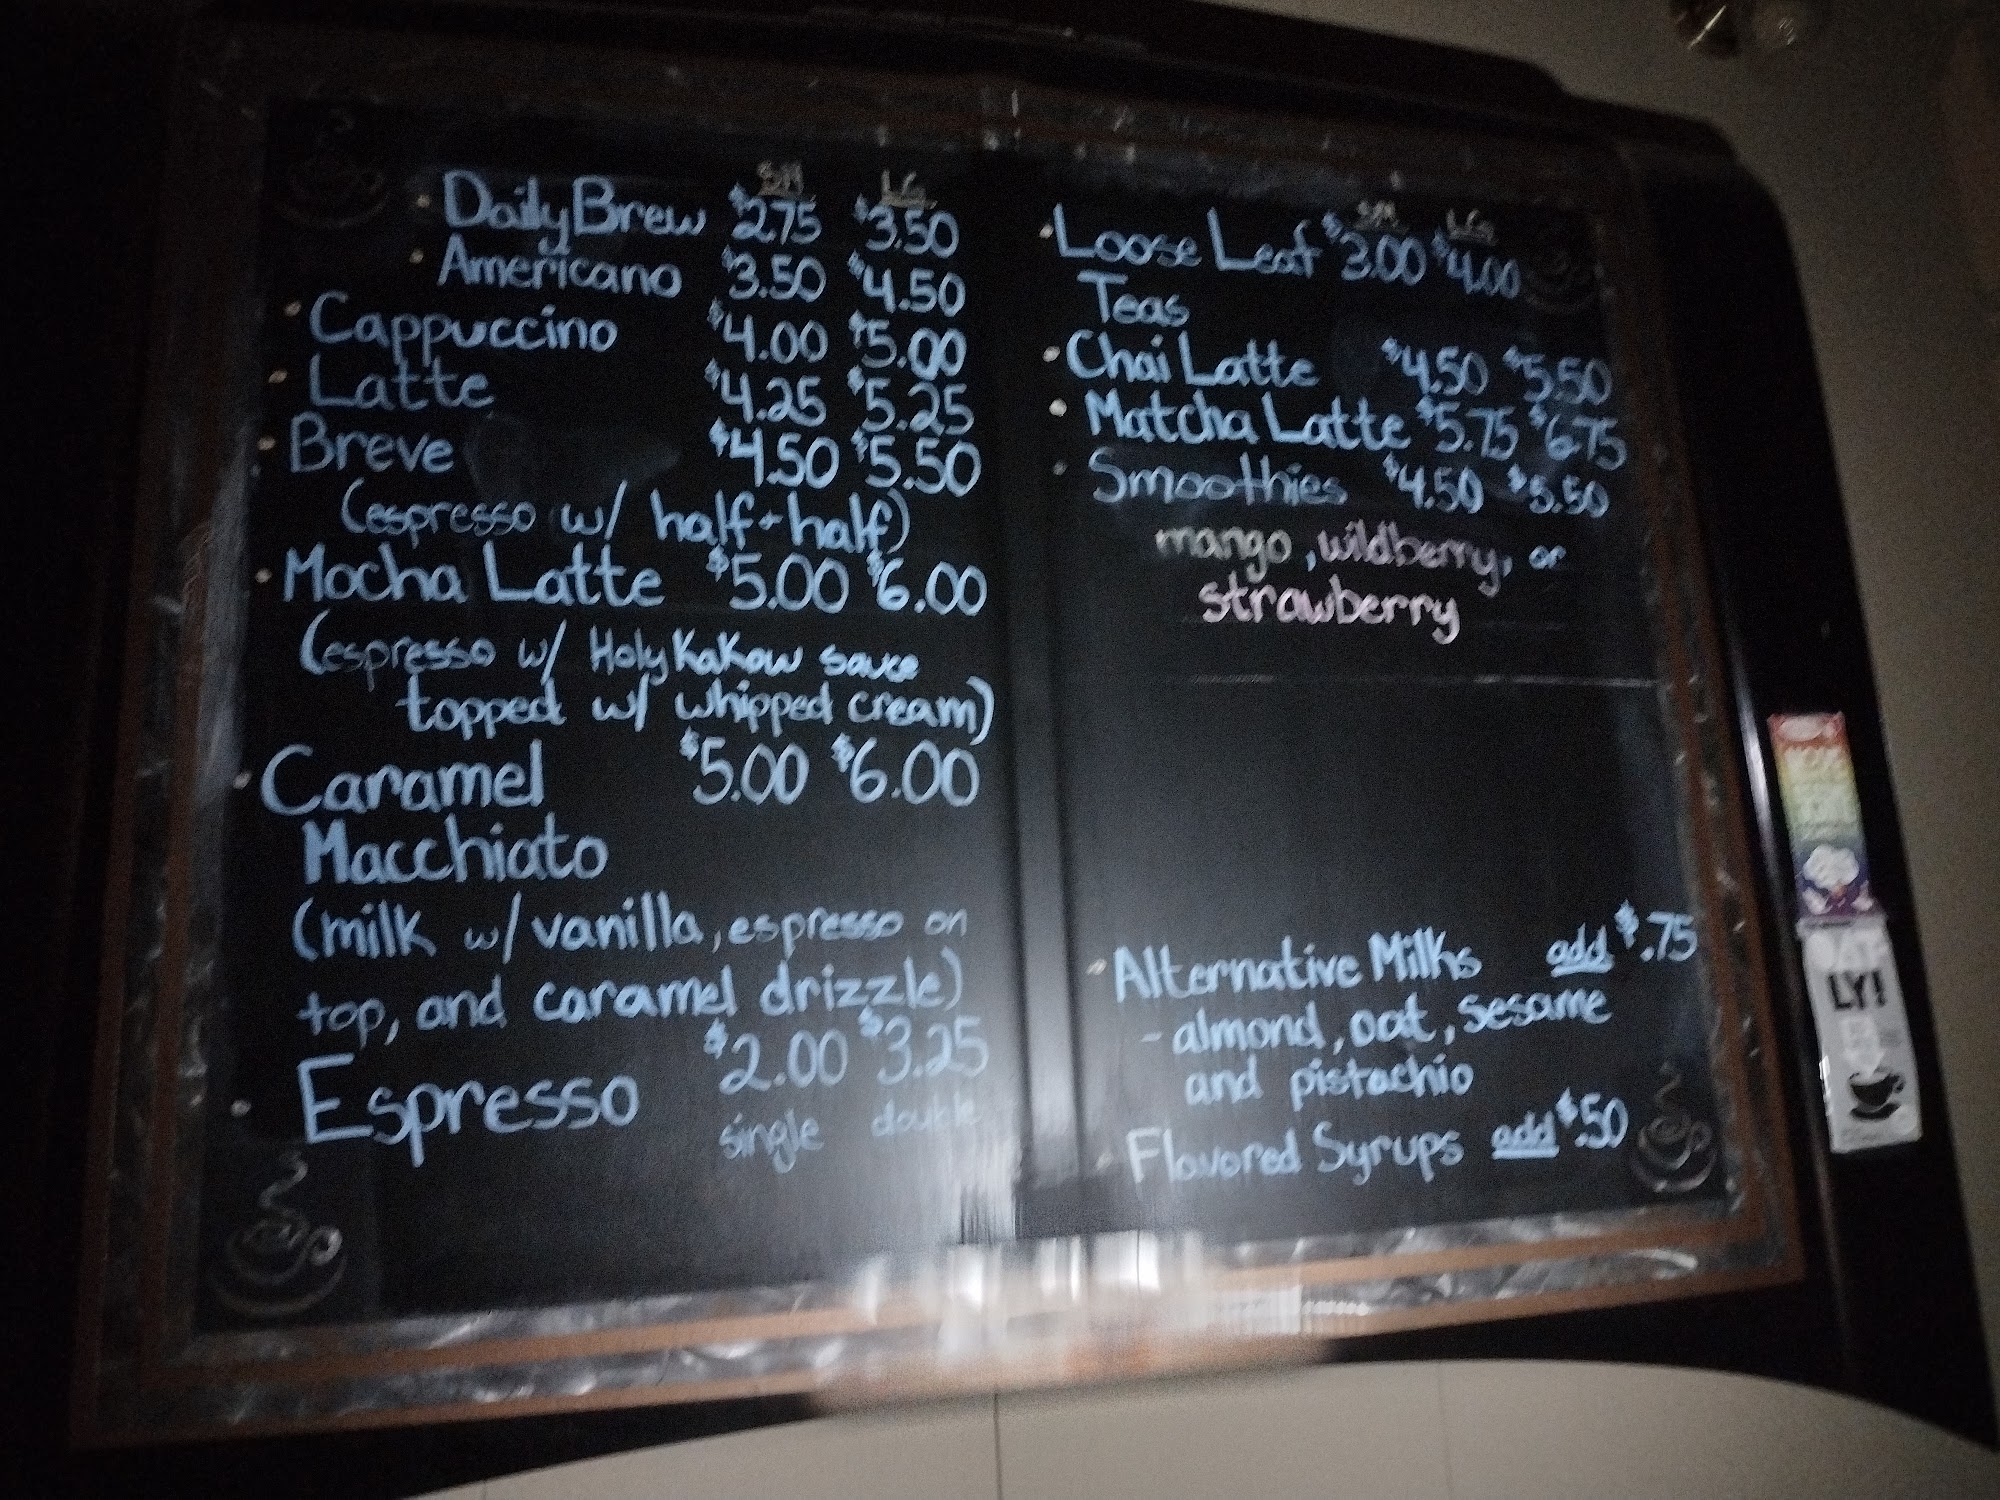 SM LG
• Daily Brew $2.75 $3.50
• Americano $3.50 $4.50
• Cappuccino $4.00 $5.00
• Latte $4.25 $5.25
• Breve $4.50 $5.50
(espresso w/ half + half)
• Mocha Latte $5.00 $6.00
(espresso w/ Holy Kakow sauce
topped w/ whipped cream)
• Caramel $5.00 $6.00
Macchiato
(milk w/ vanilla, espresso on
top, and caramel drizzle)
• Espresso $2.00 $3.25
single double
SM LG
• Loose Leaf $3.00 $4.00
Teas
• Chai Latte $4.50 $5.50
• Matcha Latte $5.75 $6.75
• Smoothies $4.50 $5.50
mango, wildberry, or
strawberry
• Alternative Milks add $.75
- almond, oat, sesame
and pistachio
• Flavored Syrups add $.50
LY!